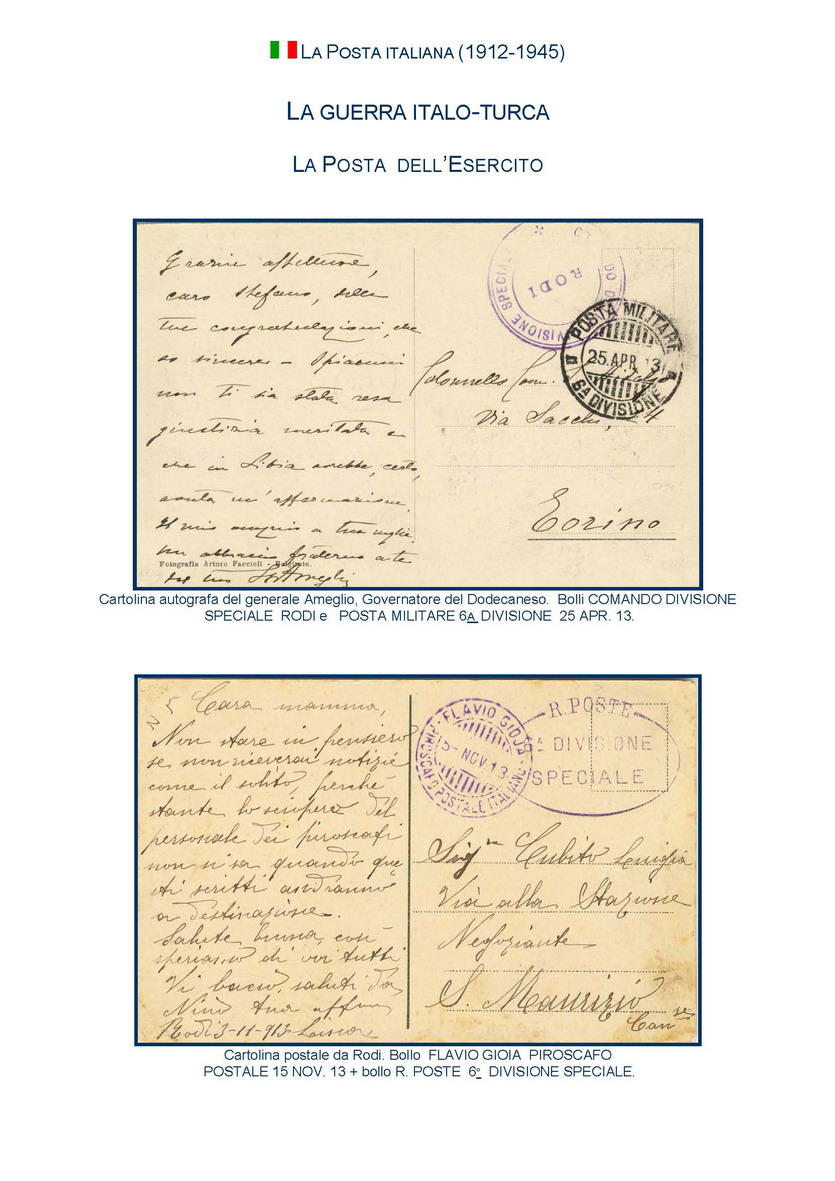 LA POSTA ITALIANA (1912-1945)
LA GUERRA ITALO-TURCA
LA POSTA DELL'ESERCITO
Grazie affettuose,
caro Stefano, delle
tue congratulazioni, che
so sincere - Spiacemi
non ti sia stata resa
giustizia meritata e
che in Libia avrebbe, certo,
avuta un'affermazione.
Il mio ossequio a tua moglie.
un abbraccio fraterno a te
Fotografia Arturo Faccioli -
dal tuo Ameglio
DIVISIONE SPECIALE
RODI
POSTA MILITARE
25 APR 13
6A DIVISIONE
Colonnello Com.
Via Sacchi, 24
Torino
Cartolina autografa del generale Ameglio, Governatore del Dodecaneso. Bolli COMANDO DIVISIONE
SPECIALE RODI e POSTA MILITARE 6A DIVISIONE 25 APR. 13.
Cara mamma,
Non stare in pensiero
se non riceverai notizie
come il solito, perchè
stante lo sciopero del
personale dei piroscafi
non si sa quando que
sti scritti andranno
a destinazione.
Salute buona, così
speriamo di voi tutti
Vi bacio, saluti da
Nino tuo affmo
Rodi 3-11-913
FLAVIO GIOJA
5-NOV 13
PIROSCAFO POSTALE ITALIANO
R. POSTE
ª DIVISIONE
SPECIALE
Sigra Cubito Luigia
Via alla Stazione
Negoziante
S. Maurizio
Canse
Cartolina postale da Rodi. Bollo FLAVIO GIOIA PIROSCAFO
POSTALE 15 NOV. 13 + bollo R. POSTE 6º DIVISIONE SPECIALE.